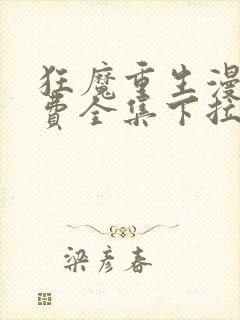 狂魔重生漫
费全集下拉
梁彦春